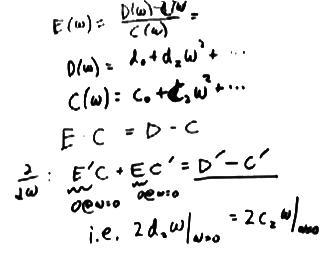 E(ω) = D(ω) - C(ω) / C(ω) =
D(ω) = d₀ + d₂ω² + ...
C(ω) = C₀ + C₂ω² + ...
E · C = D - C
∂/∂ω : E'C + EC' = D' - C'
0@ω=0 0@ω=0
i.e. 2d₂ω|ω=0 = 2C₂ω|ω=0